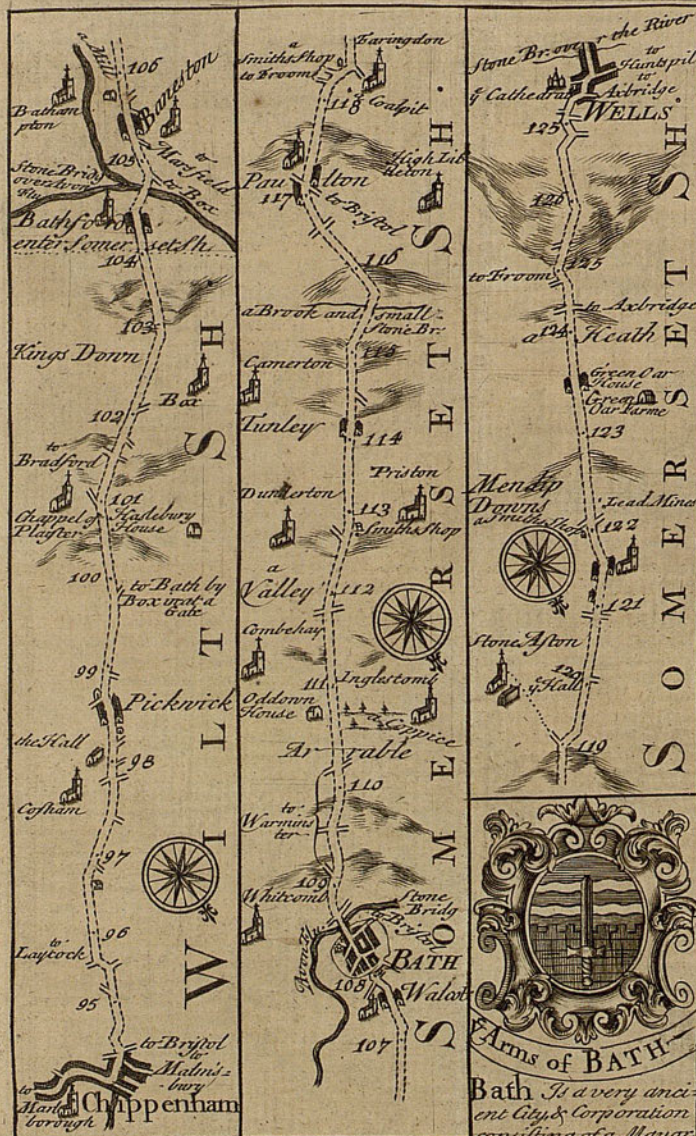 a Mill
106
Baneston
Batham
pton
to
Marsfield
105
to Box
Stone Bridg
over Avon
Flu
Bathford
enter Somer setsh.
104
103
Kings Down
Box
102
to
Bradford
101
Chappel of
Playster
Haslebury
House
100
to Bath by
Box in at a
Gate
99
Pickwick
the Hall
98
Cosham
97
96
to
Laycock
95
to Bristol
to
Malms=
bury
to
Marl
borough
Chippenham
WILTSH
a
Smiths Shop
to Froom
Faringdon
118
Coalpit
High Lit
tleton
Pau lton
117
to Bristol
116
a Brook and small
Stone Br.
115
Camerton
Tunley
114
Priston
Dunkerton
113
Smiths Shop
a
Valley
112
Combehay
111
Inglestomb
Oddown
House
a Coppice
Ar rable
110
to
Warmins
ter
109
Whitcomb
Stone
Bridg
to Bristol
Avon Flu
BATH
108
Walcot
107
SOMERSETSH.
Stone Br. over the River
to
Huntspil
to
Axbridge
ye Cathedral
WELLS
125
126
125
to Froom
to Axbridge
a 124 Heath
Green Oar
House
Green
Oar Farme
123
Mendip
Downs
Lead Mines
a Smiths Shop
122
121
Stone Aston
120
ye Hall
119
SOMERSETSH.
ye Arms of BATH
Bath Is a very anci=
ent City & Corporation
consisting of a Mayor